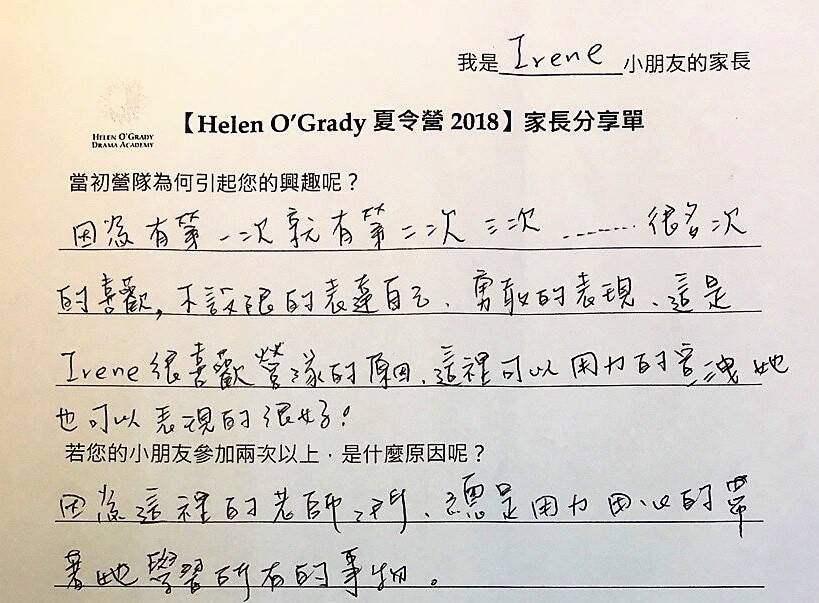 我是 Irene 小朋友的家長
HELEN O'GRADY
DRAMA ACADEMY
【Helen O'Grady 夏令營 2018】家長分享單
當初營隊為何引起您的興趣呢？
因為有第一次就有第二次 三次 ……… 很多次
的喜歡，不設限的表達自己、勇敢的表現、這是
Irene很喜歡營隊的原因，這裡可以用力的宣洩 她
也可以表現的很好！
若您的小朋友參加兩次以上，是什麼原因呢？
因為這裡的老師們、總是用力用心的帶
著她學習所有的事物。